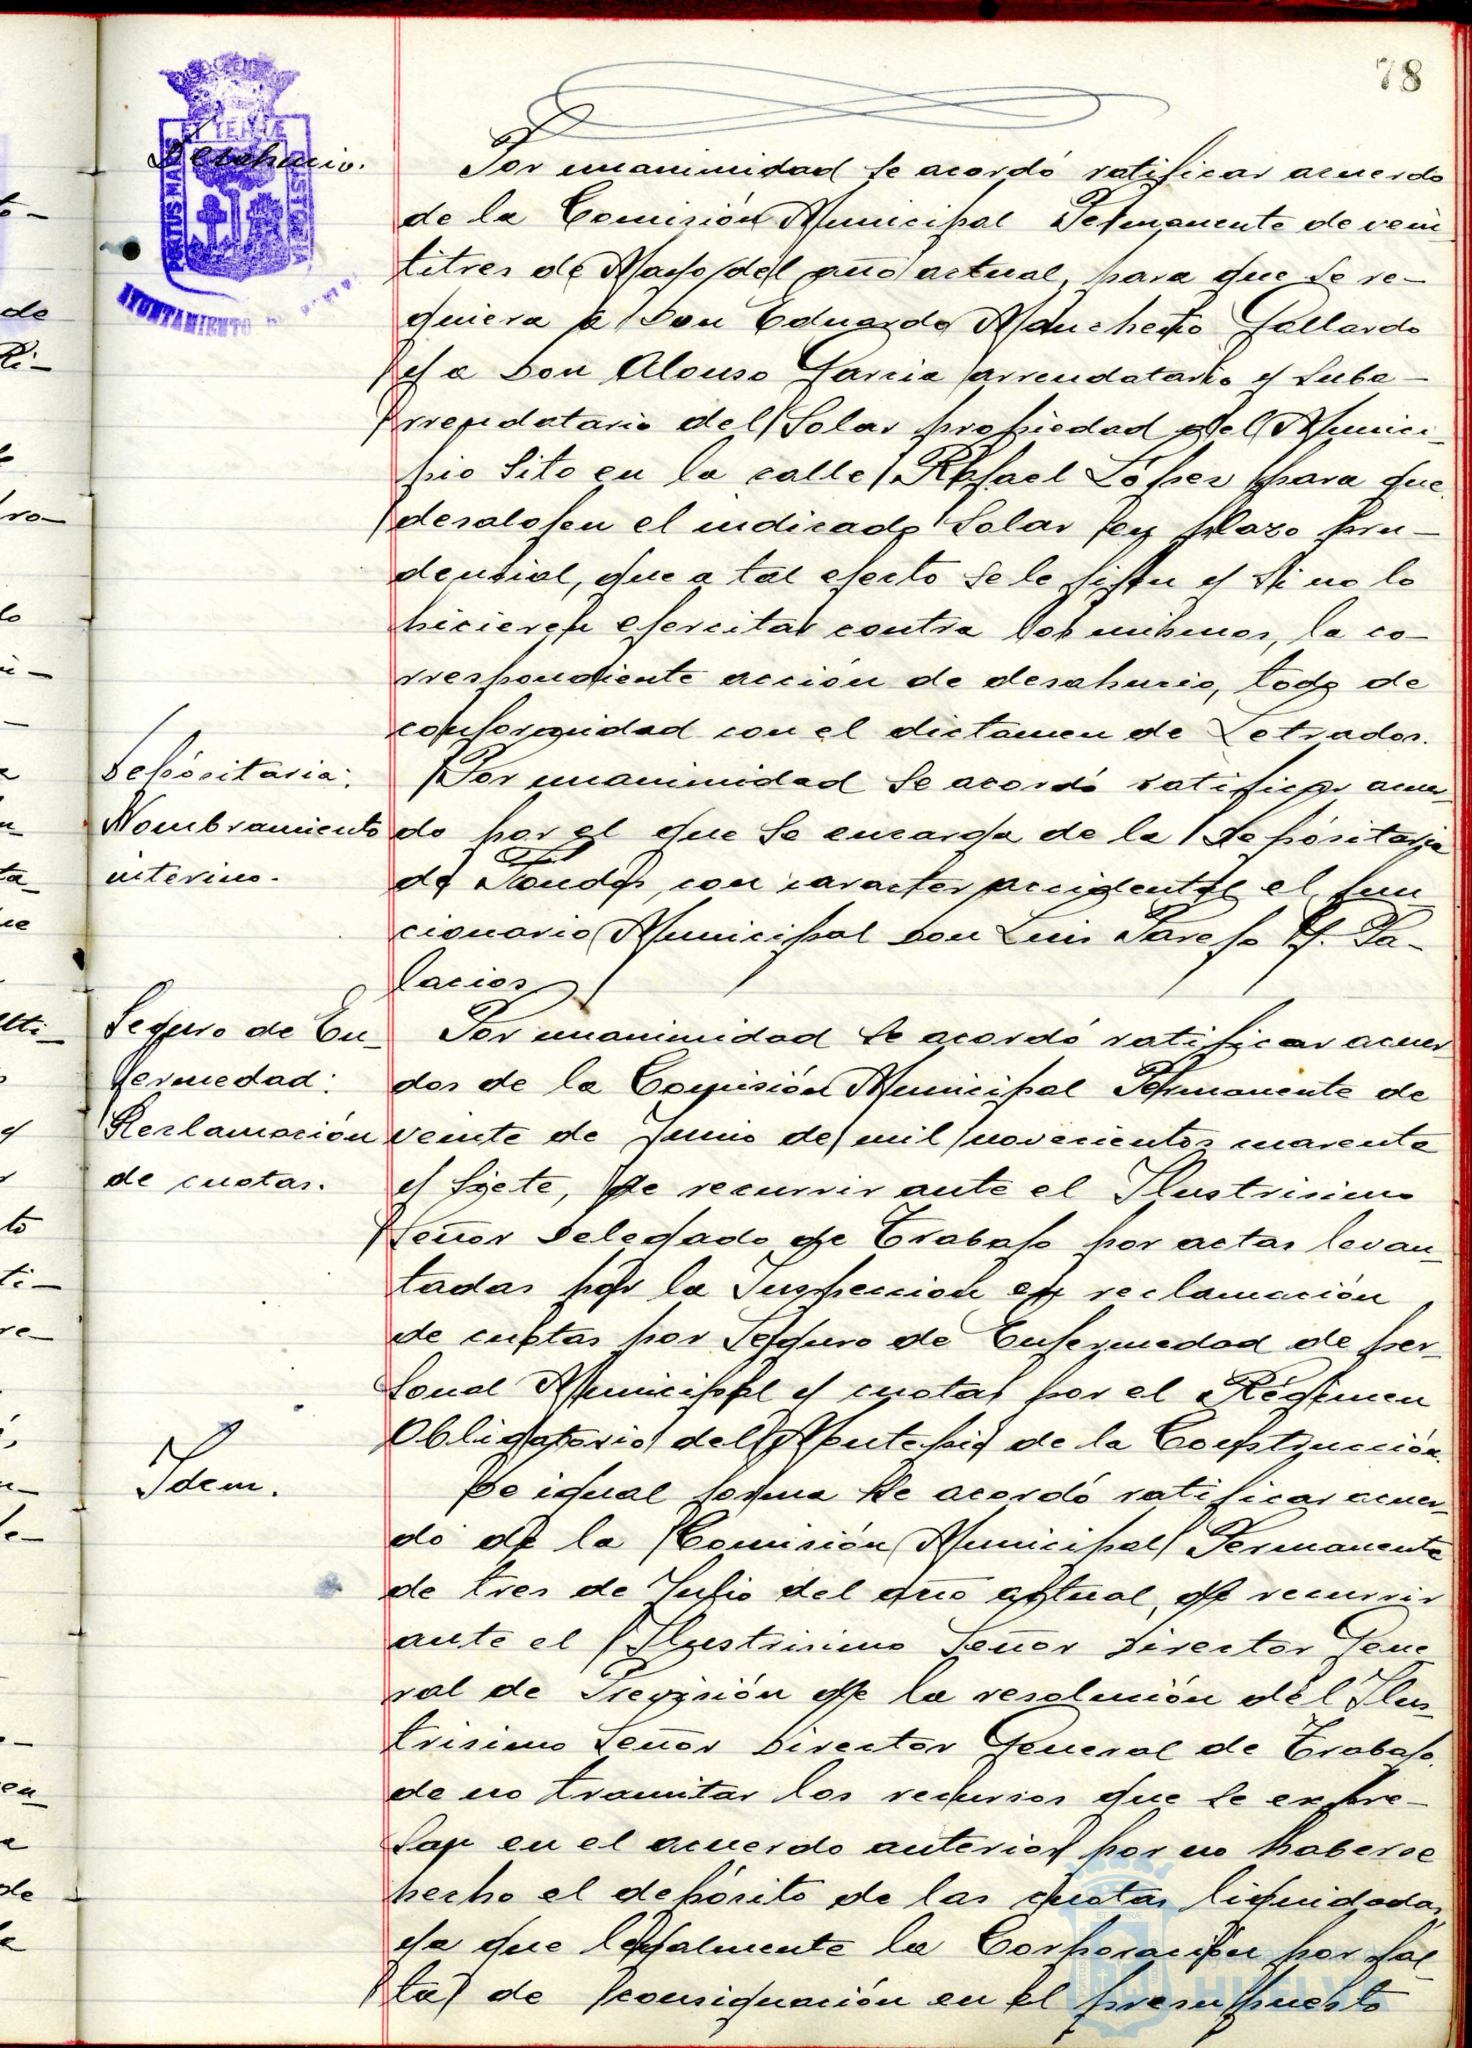 78
Desahucio.
Por unanimidad se acordó ratificar acuerdo
de la Comisión Municipal Permanente de vein
titres de Mayo del año actual, para que se re-
quiera a Don Eduardo Mancheño Gallardo
y a Don Alonso Garcia arrendatario y suba-
rrendatario del Solar propiedad del Munici-
pio sito en la calle Rafael López para que
desalojen el indicado Solar en plazo pru-
dencial, que a tal efecto se le fijen y si no lo
hicieren ejercitar contra los mismos, la co-
rrespondiente acción de desahucio, todo de
conformidad con el dictamen de Letrados.
Depósitaria:
Nombramiento
interino.
Por unanimidad se acordó ratificar acuer-
do por el que se encarga de la Depósitaria
de Fondos, con caracter accidental el fun
cionario Municipal Don Luis Parejo Pa-
lacios
Seguro de En-
fermedad:
Reclamación
de cuotas.
Por unanimidad se acordó ratificar acuer
dos de la Comisión Municipal Permanente de
veinte de Junio de mil novecientos cuarenta
y siete, de recurrir ante el Ilustrisimo
Señor Delegado de Trabajo por actas levan-
tadas por la Inspeccion en reclamación
de cuotas por Seguro de Enfermedad de per-
sonal Municipal y cuotas por el Régimen
Obligatorio del Montepio de la Construcción.
Idem.
De igual forma se acordó ratificar acuer-
do de la Comisión Municipal Permanente
de tres de Julio del año actual, de recurrir
ante el Ilustrisimo Señor Director Gene
ral de Previsión de la resolución del Ilus-
trisimo Señor Director General de Trabajo.
de no tramitar los recursos que se expre-
san en el acuerdo anterior por no haberse
hecho el depósito de las cuotas liquidadas,
ya que legalmente la Corporación por fal-
ta de consignación en el presupuesto
PORTUS MARIS
ET TERRAE
CUSTODIA
AYUNTAMIENTO
HUELVA